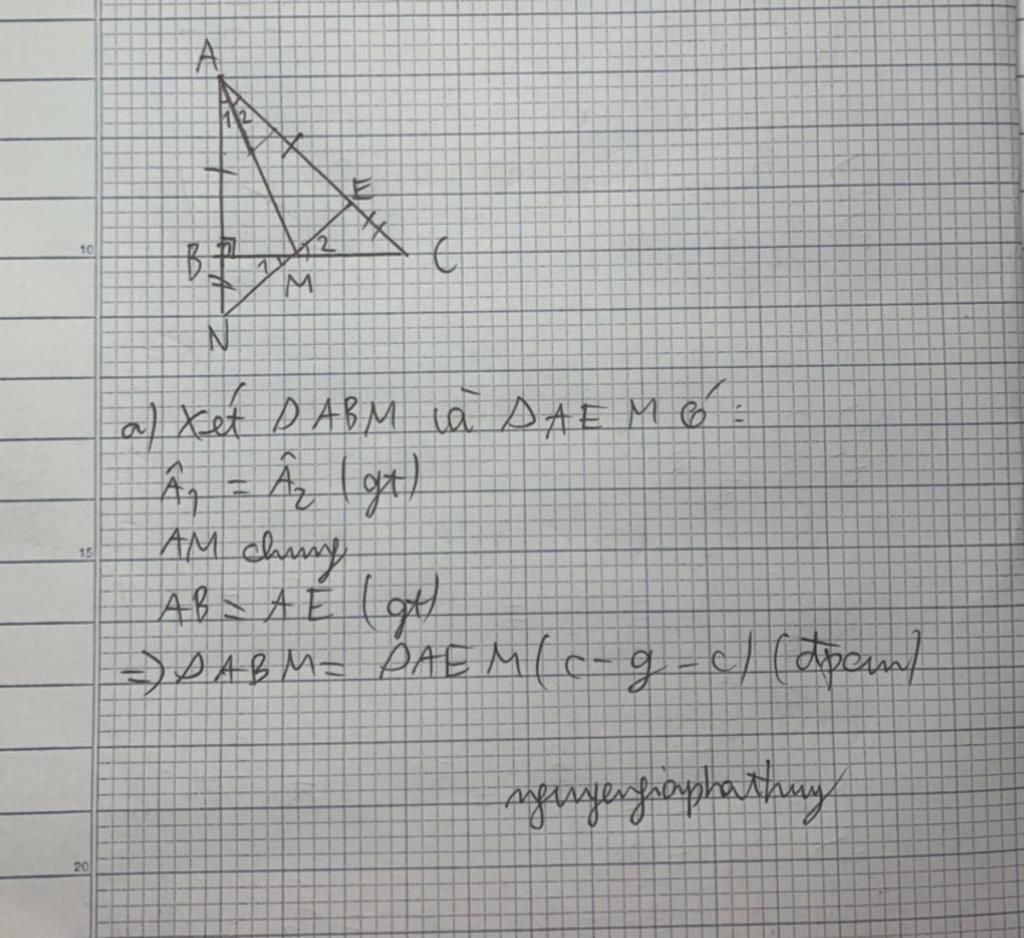 A
1 2
E
10
B
1
2
C
M
N
a) Xét ΔABM và ΔAEM có:
Â₁ = Â₂ (gt)
15
AM chung
AB = AE (gt)
=> ΔABM = ΔAEM (c-g-c) (đpcm)
nguyengiaphathuy
20